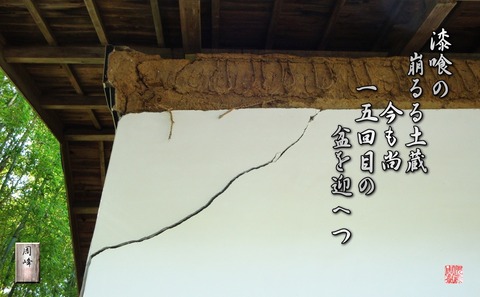 漆喰の
崩るる土蔵
今も尚
一五回目の
盆を迎へつ
周峰